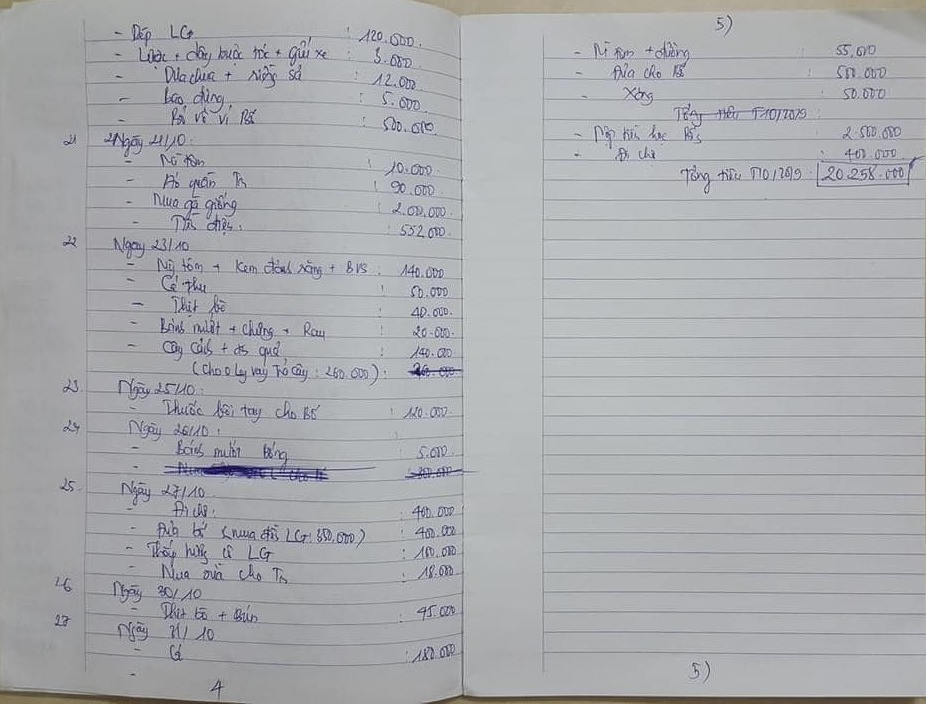 - Dép LG : 120.000
- Lược + dây buộc tóc + gửi xe : 3.000
- Dưa chua + riềng sả : 12.000
- Bao đựng : 5.000
- Bố về ví Bố : 500.000
21 Ngày 21/10:
- Mì tôm : 10.000
- Áo quần Tn : 90.000
- Mua gà giống : 2.000.000
- Tiền điện : 552.000
22 Ngày 23/10
- Mỳ tôm + kem đánh răng + BVS : 140.000
- Cá thu : 50.000
- Thịt bò : 40.000
- Bánh mướt + chưng + Ram : 20.000
- Cây cảnh + hoa quả : 140.000
(Cho O Ly vay trả cây : 260.000) : 260.000
23 Ngày 25/10:
- Thuốc bôi tay cho Bố : 120.000
24 Ngày 26/10:
- Bánh mướt nóng : 5.000
25 Ngày 27/10
- Đi chợ : 400.000
- Đưa bố (mua đồ LG: 350.000) : 400.000
- Thắp hương LG : 150.000
- Mua sữa cho Tn : 18.000
26 Ngày 30/10
- Thịt bò + Bún : 45.000
27 Ngày 31/10
- Cá : 180.000
-
4
5)
- Mì tôm + đường : 55.000
- Đưa cho Bố : 500.000
- Xăng : 50.000
Tổng tiêu T10/2019 :
- Nộp tiền học : 2.500.000
- Đi chợ : 400.000
Tổng tiêu T10/2019 : 20.258.000
5)